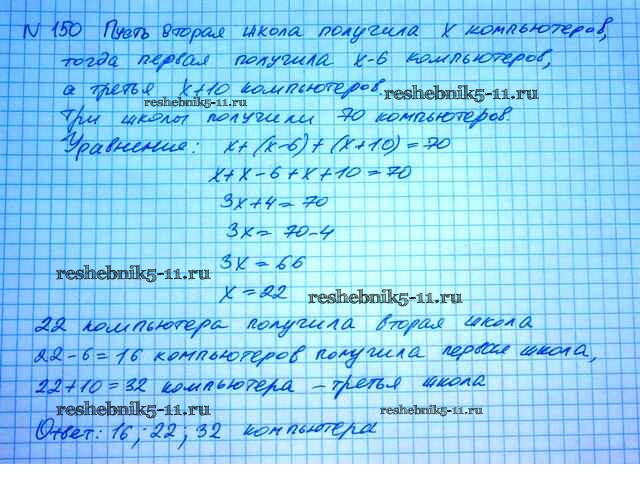 N 150 Пусть вторая школа получила x компьютеров,
тогда первая получила x-6 компьютеров,
а третья x+10 компьютеров.
reshebnik5-11.ru reshebnik5-11.ru
Три школы получили 70 компьютеров.
Уравнение: x+(x-6)+(x+10)=70
x+x-6+x+10=70
3x+4=70
3x=70-4
3x=66
reshebnik5-11.ru
x=22 reshebnik5-11.ru
22 компьютера получила вторая школа
22-6=16 компьютеров получила первая школа,
22+10=32 компьютера - третья школа
reshebnik5-11.ru reshebnik5-11.ru
Ответ: 16; 22; 32 компьютера